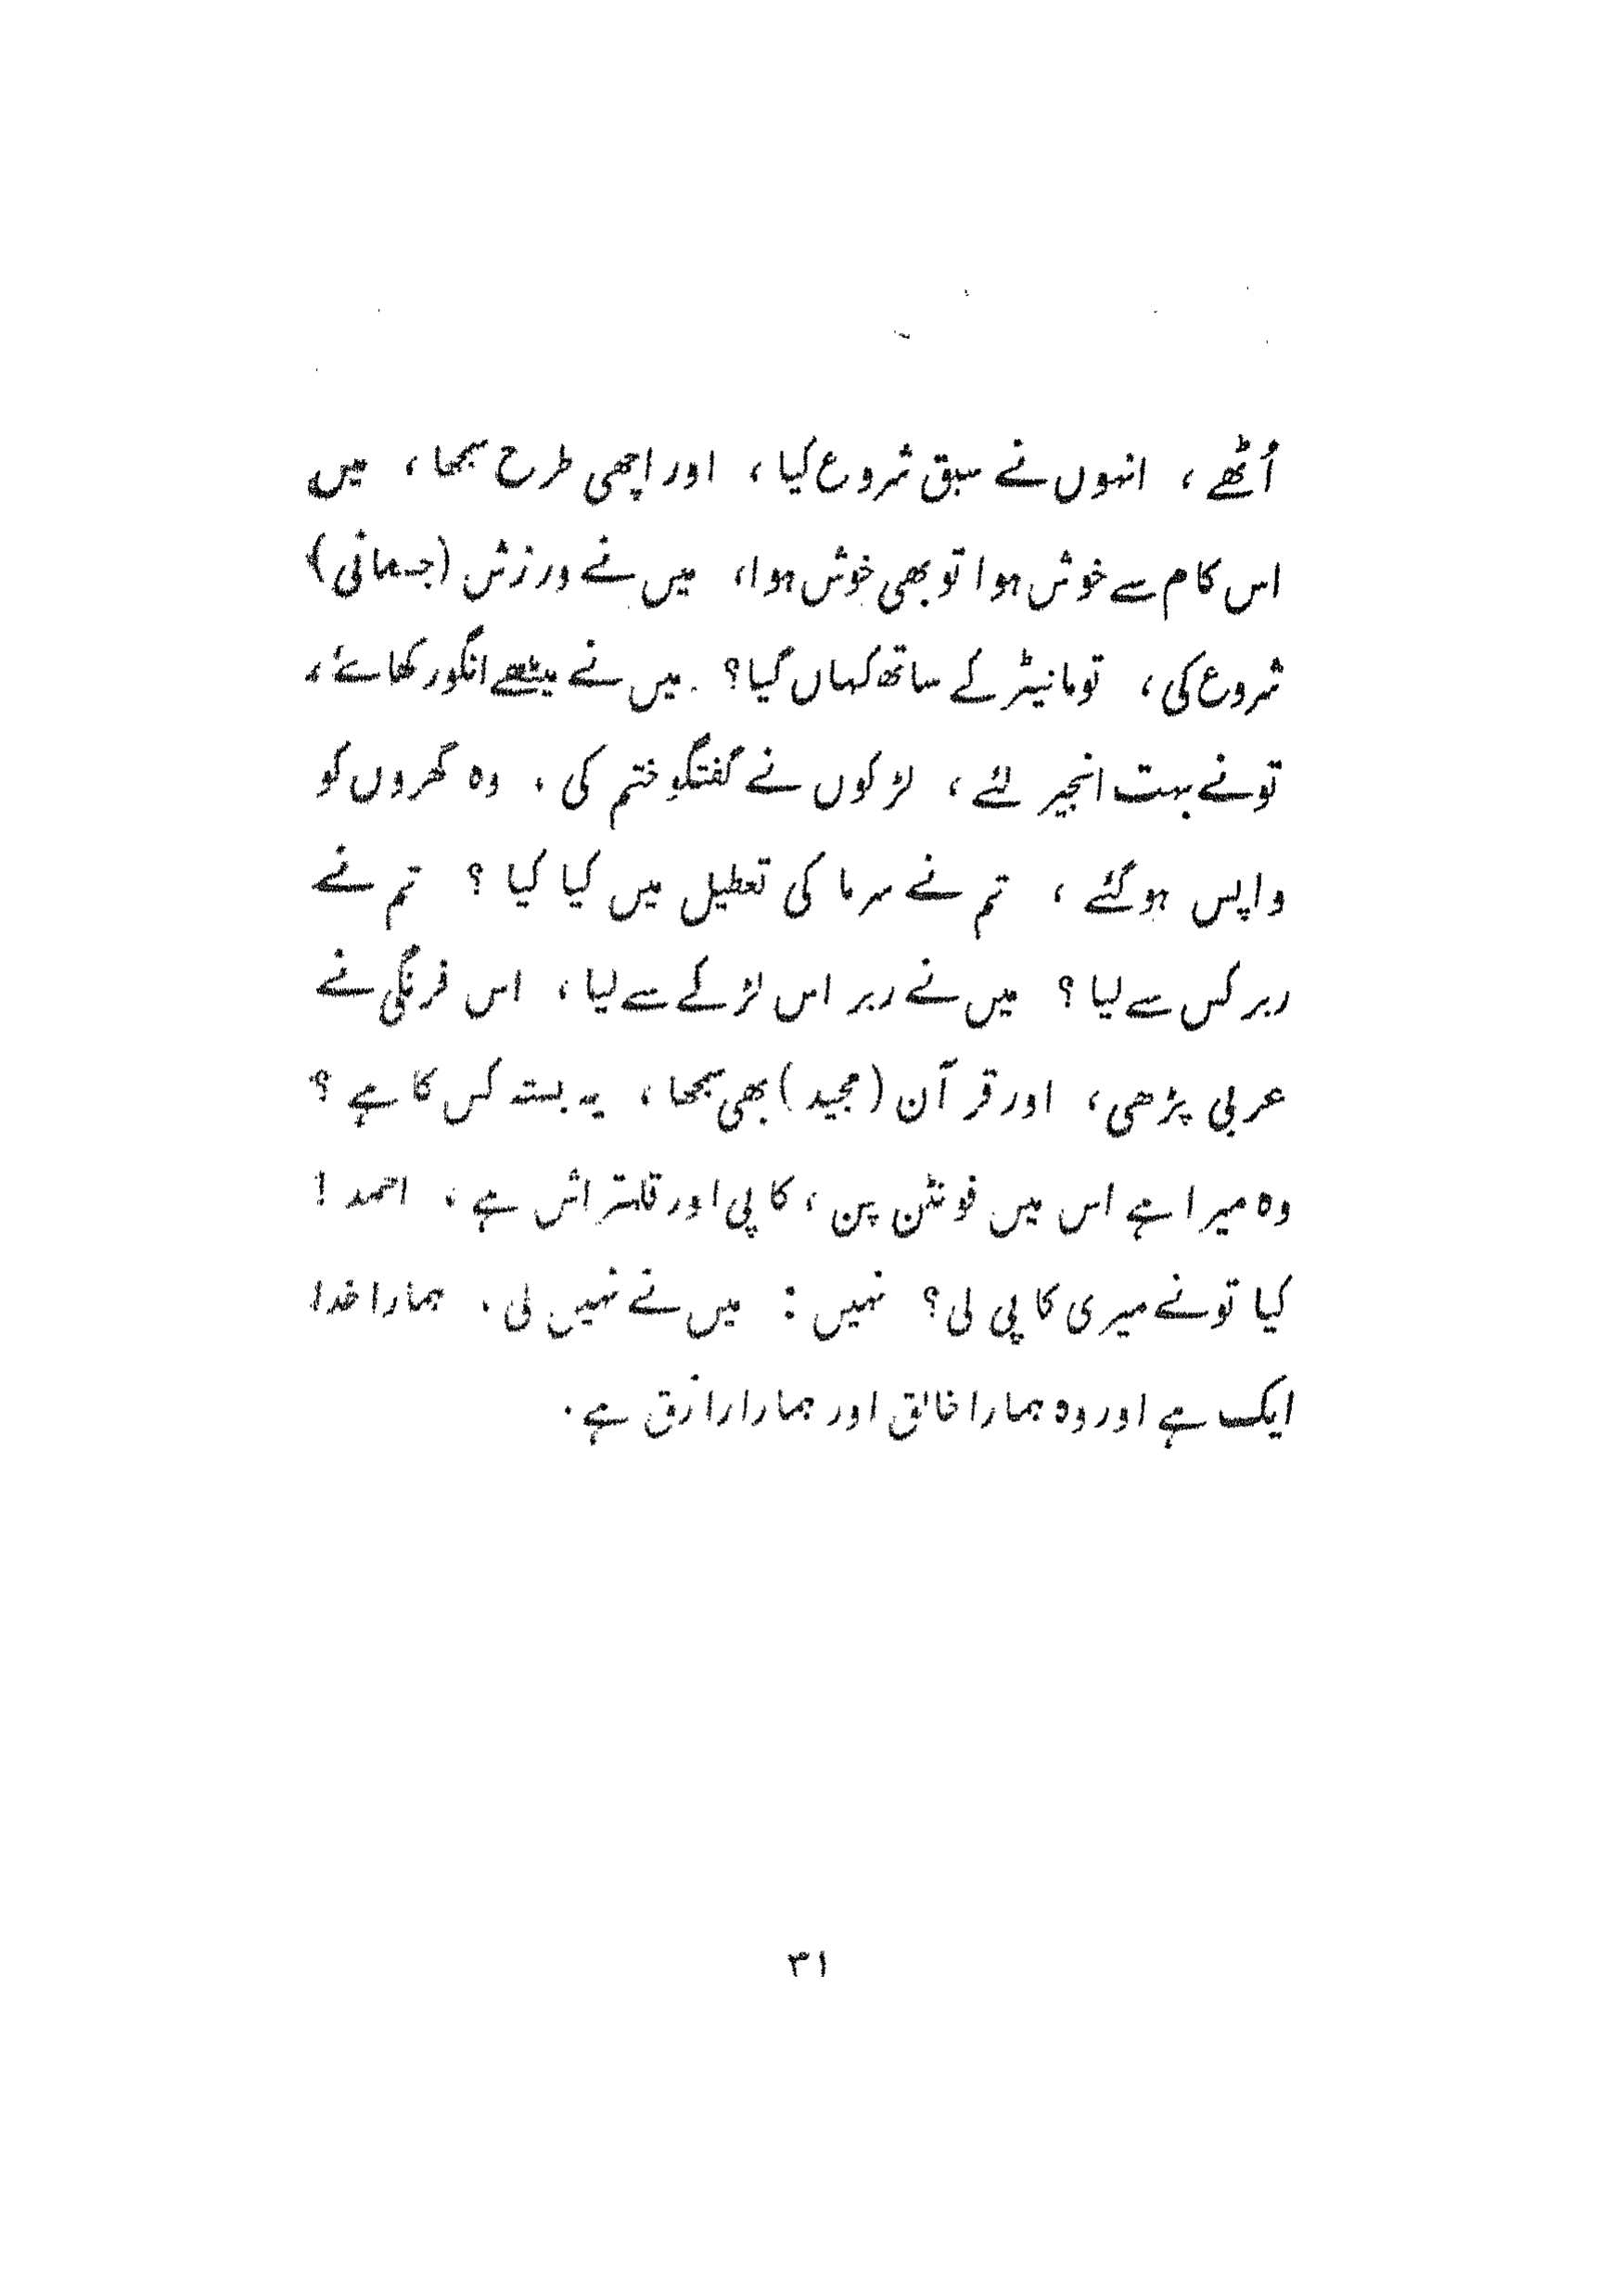 اُٹھے ، انہوں نے سبق شروع کیا ، اور اچھی طرح سمجھا ، میں
اس کام سے خوش ہوا تو بھی خوش ہوا ، میں نے ورزش (جسمانی)
شروع کی ، تو مانیٹر کے ساتھ کہاں گیا ؟ میں نے میٹھے انگور کھائے ،
تو نے بہت انجیر لئے ، لڑکوں نے گفتگو ختم کی . وہ گھروں کو
واپس ہو گئے ، تم نے سرما کی تعطیل میں کیا کیا ؟ تم نے
ربر کس سے لیا ؟ میں نے ربر اس لڑکے سے لیا ، اس فرنگی نے
عربی پڑھی ، اور قرآن (مجید) بھی سمجھا ، یہ بستہ کس کا ہے ؟
وہ میرا ہے اس میں فونٹن پن ، کاپی اور قلمتراش ہے ، احمد !
کیا تو نے میری کاپی لی ؟ نہیں : میں نے نہیں لی . ہمارا خدا
ایک ہے اور وہ ہمارا خالق اور ہمارا رازق ہے .
۳۱